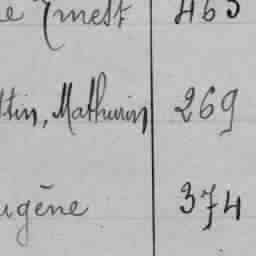 e Ernest 465
ttin, Mathurin 269
ugène 374